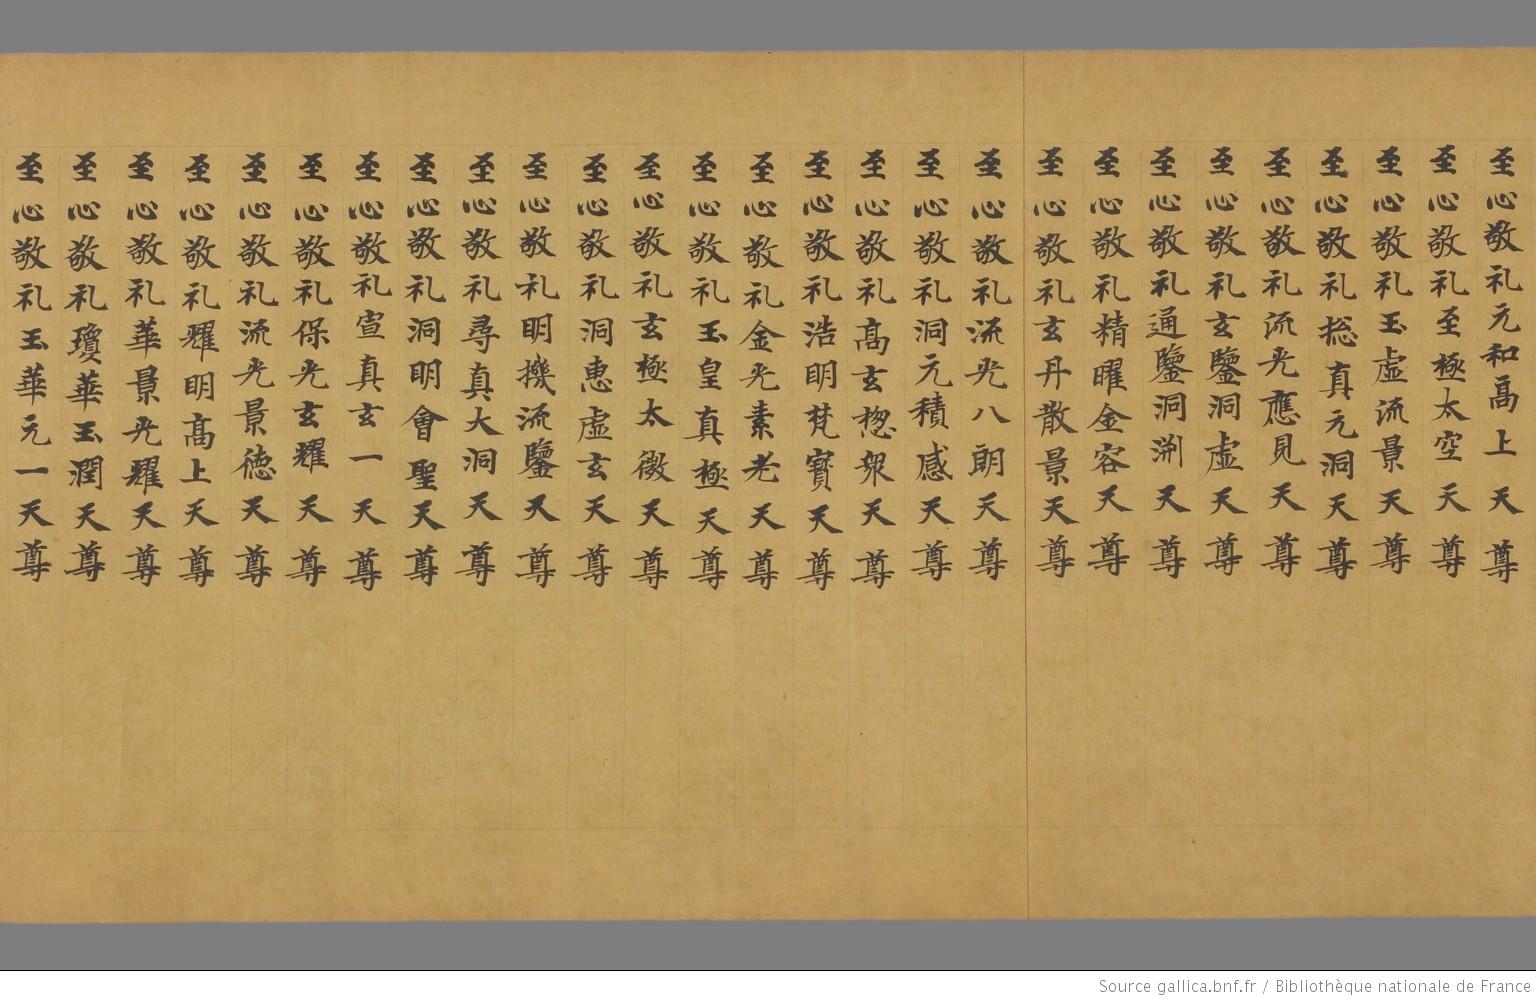 至心敬礼元和高上天尊
至心敬礼至極太空天尊
至心敬礼玉虛流景天尊
至心敬礼揔真元洞天尊
至心敬礼流光應見天尊
至心敬礼玄鑒洞虛天尊
至心敬礼通鑒洞渊天尊
至心敬礼精曜金容天尊
至心敬礼玄丹散景天尊
至心敬礼流光八朗天尊
至心敬礼洞元積感天尊
至心敬礼高玄惣衆天尊
至心敬礼浩明梵寳天尊
至心敬礼金光素老天尊
至心敬礼玉皇真極天尊
至心敬礼玄極太微天尊
至心敬礼洞恵虛玄天尊
至心敬礼明機流鑒天尊
至心敬礼尋真大洞天尊
至心敬礼洞明會聖天尊
至心敬礼宣真玄一天尊
至心敬礼保光玄耀天尊
至心敬礼流光景德天尊
至心敬礼耀明高上天尊
至心敬礼華景光耀天尊
至心敬礼瓊華玉潤天尊
至心敬礼玉華元一天尊
Source gallica.bnf.fr / Bibliothèque nationale de France